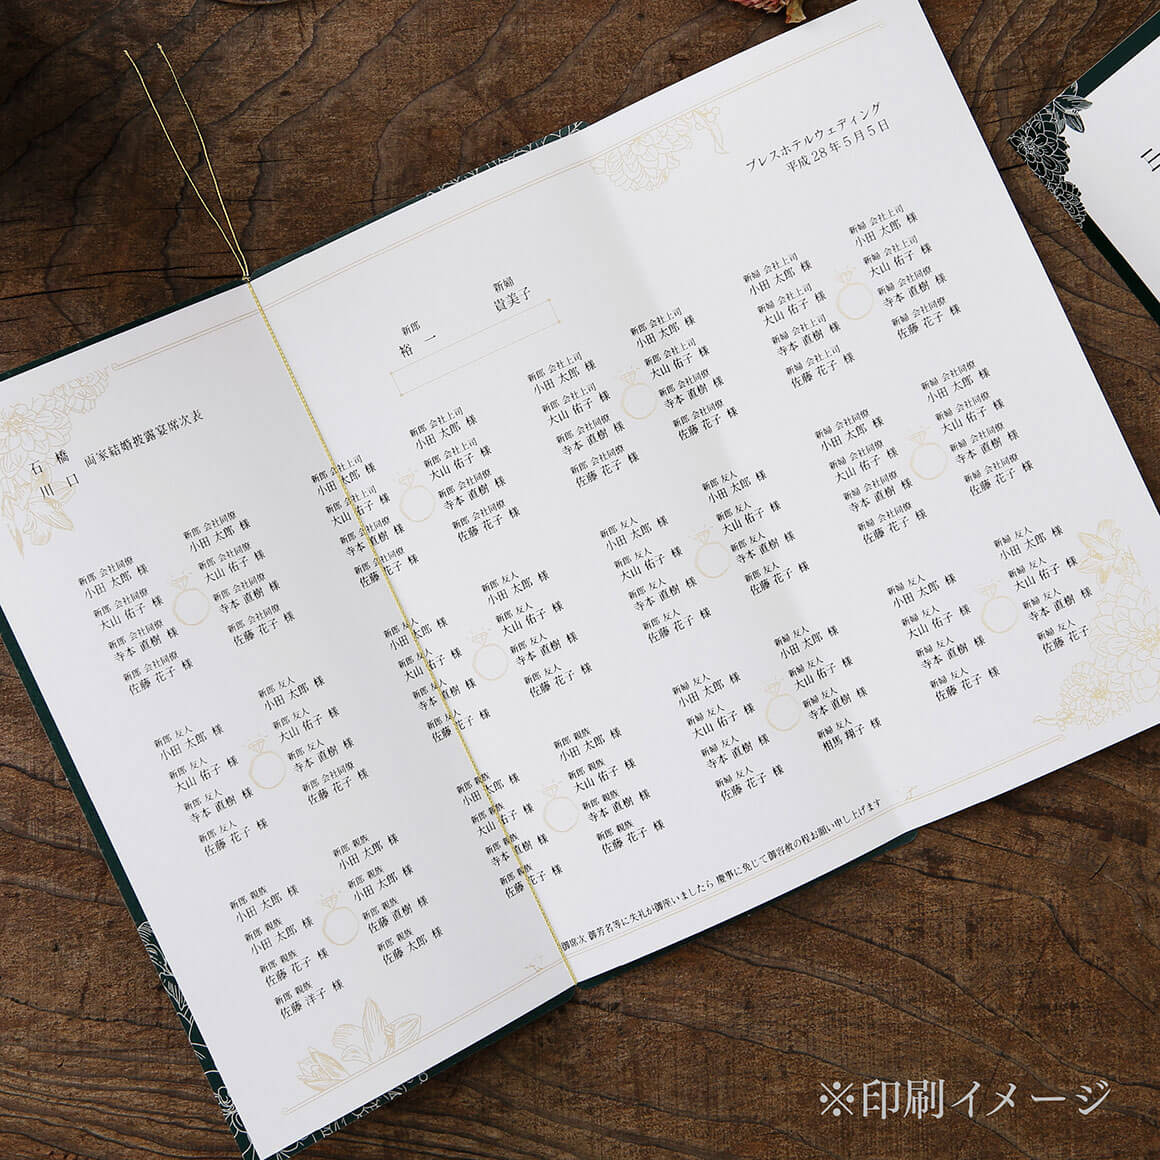 ブレスホテルウェディング
平成28年5月5日
石 橋
川 口
両家結婚披露宴席次表
新郎
裕 一
新婦
貴美子
新郎 会社同僚
小田 太郎 様
新郎 会社同僚
大山 佑子 様
新郎 会社同僚
寺本 直樹 様
新郎 会社同僚
佐藤 花子 様
新郎 会社同僚
小田 太郎 様
新郎 会社同僚
大山 佑子 様
新郎 会社同僚
寺本 直樹 様
新郎 会社同僚
佐藤 花子 様
新郎 友人
小田 太郎 様
新郎 友人
大山 佑子 様
新郎 友人
寺本 直樹 様
新郎 友人
佐藤 花子 様
新郎 友人
小田 太郎 様
新郎 友人
大山 佑子 様
新郎 友人
寺本 直樹 様
新郎 会社同僚
佐藤 花子 様
新郎 親族
小田 太郎 様
新郎 親族
小田 太郎 様
新郎 親族
佐藤 花子 様
新郎 親族
佐藤 洋子 様
新郎 親族
小田 太郎 様
新郎 親族
小田 太郎 様
新郎 親族
佐藤 直樹 様
新郎 親族
佐藤 太郎 様
新郎 会社上司
小田 太郎 様
新郎 会社上司
大山 佑子 様
新郎 会社同僚
寺本 直樹 様
新郎 会社同僚
佐藤 花子 様
新郎 会社上司
小田 太郎 様
新郎 会社上司
大山 佑子 様
新郎 会社同僚
寺本 直樹 様
新郎 会社同僚
佐藤 花子 様
新郎 友人
小田 太郎 様
新郎 友人
大山 佑子 様
新郎 友人
寺本 直樹 様
新郎 友人
佐藤 花子 様
新郎 友人
小田 太郎 様
新郎 友人
大山 佑子 様
新郎 友人
寺本 直樹 様
新郎 友人
佐藤 花子 様
新郎 親族
小田 太郎 様
新郎 親族
大山 佑子 様
新郎 親族
寺本 直樹 様
新郎 親族
佐藤 花子 様
新郎 親族
小田 太郎 様
新郎 親族
大山 佑子 様
新郎 親族
寺本 直樹 様
新郎 親族
佐藤 花子 様
新郎 会社上司
小田 太郎 様
新郎 会社上司
大山 佑子 様
新郎 会社同僚
寺本 直樹 様
新郎 会社同僚
佐藤 花子 様
新郎 会社上司
小田 太郎 様
新郎 会社上司
大山 佑子 様
新郎 会社同僚
寺本 直樹 様
新郎 会社同僚
佐藤 花子 様
新郎 友人
小田 太郎 様
新郎 友人
大山 佑子 様
新郎 友人
寺本 直樹 様
新郎 友人
佐藤 花子 様
新郎 友人
小田 太郎 様
新郎 友人
大山 佑子 様
新郎 友人
寺本 直樹 様
新郎 友人
佐藤 花子 様
新婦 友人
小田 太郎 様
新婦 友人
大山 佑子 様
新婦 友人
寺本 直樹 様
新婦 友人
佐藤 花子 様
新婦 友人
小田 太郎 様
新婦 友人
大山 佑子 様
新婦 友人
寺本 直樹 様
新婦 友人
相馬 翔子 様
新婦 会社上司
小田 太郎 様
新婦 会社上司
大山 佑子 様
新婦 会社上司
寺本 直樹 様
新婦 会社上司
佐藤 花子 様
新婦 会社上司
小田 太郎 様
新婦 会社上司
大山 佑子 様
新婦 会社同僚
寺本 直樹 様
新婦 会社同僚
佐藤 花子 様
新婦 会社同僚
小田 太郎 様
新婦 会社同僚
大山 佑子 様
新婦 会社同僚
寺本 直樹 様
新婦 会社同僚
佐藤 花子 様
新婦 会社同僚
小田 太郎 様
新婦 会社同僚
大山 佑子 様
新婦 会社同僚
寺本 直樹 様
新婦 会社同僚
佐藤 花子 様
新婦 友人
小田 太郎 様
新婦 友人
大山 佑子 様
新婦 友人
寺本 直樹 様
新婦 友人
佐藤 花子 様
新婦 友人
小田 太郎 様
新婦 友人
大山 佑子 様
新婦 友人
寺本 直樹 様
新婦 友人
佐藤 花子
御席次 御芳名等に失礼が御座いましたら 慶事に免じて御容赦の程お願い申し上げます
※印刷イメージ